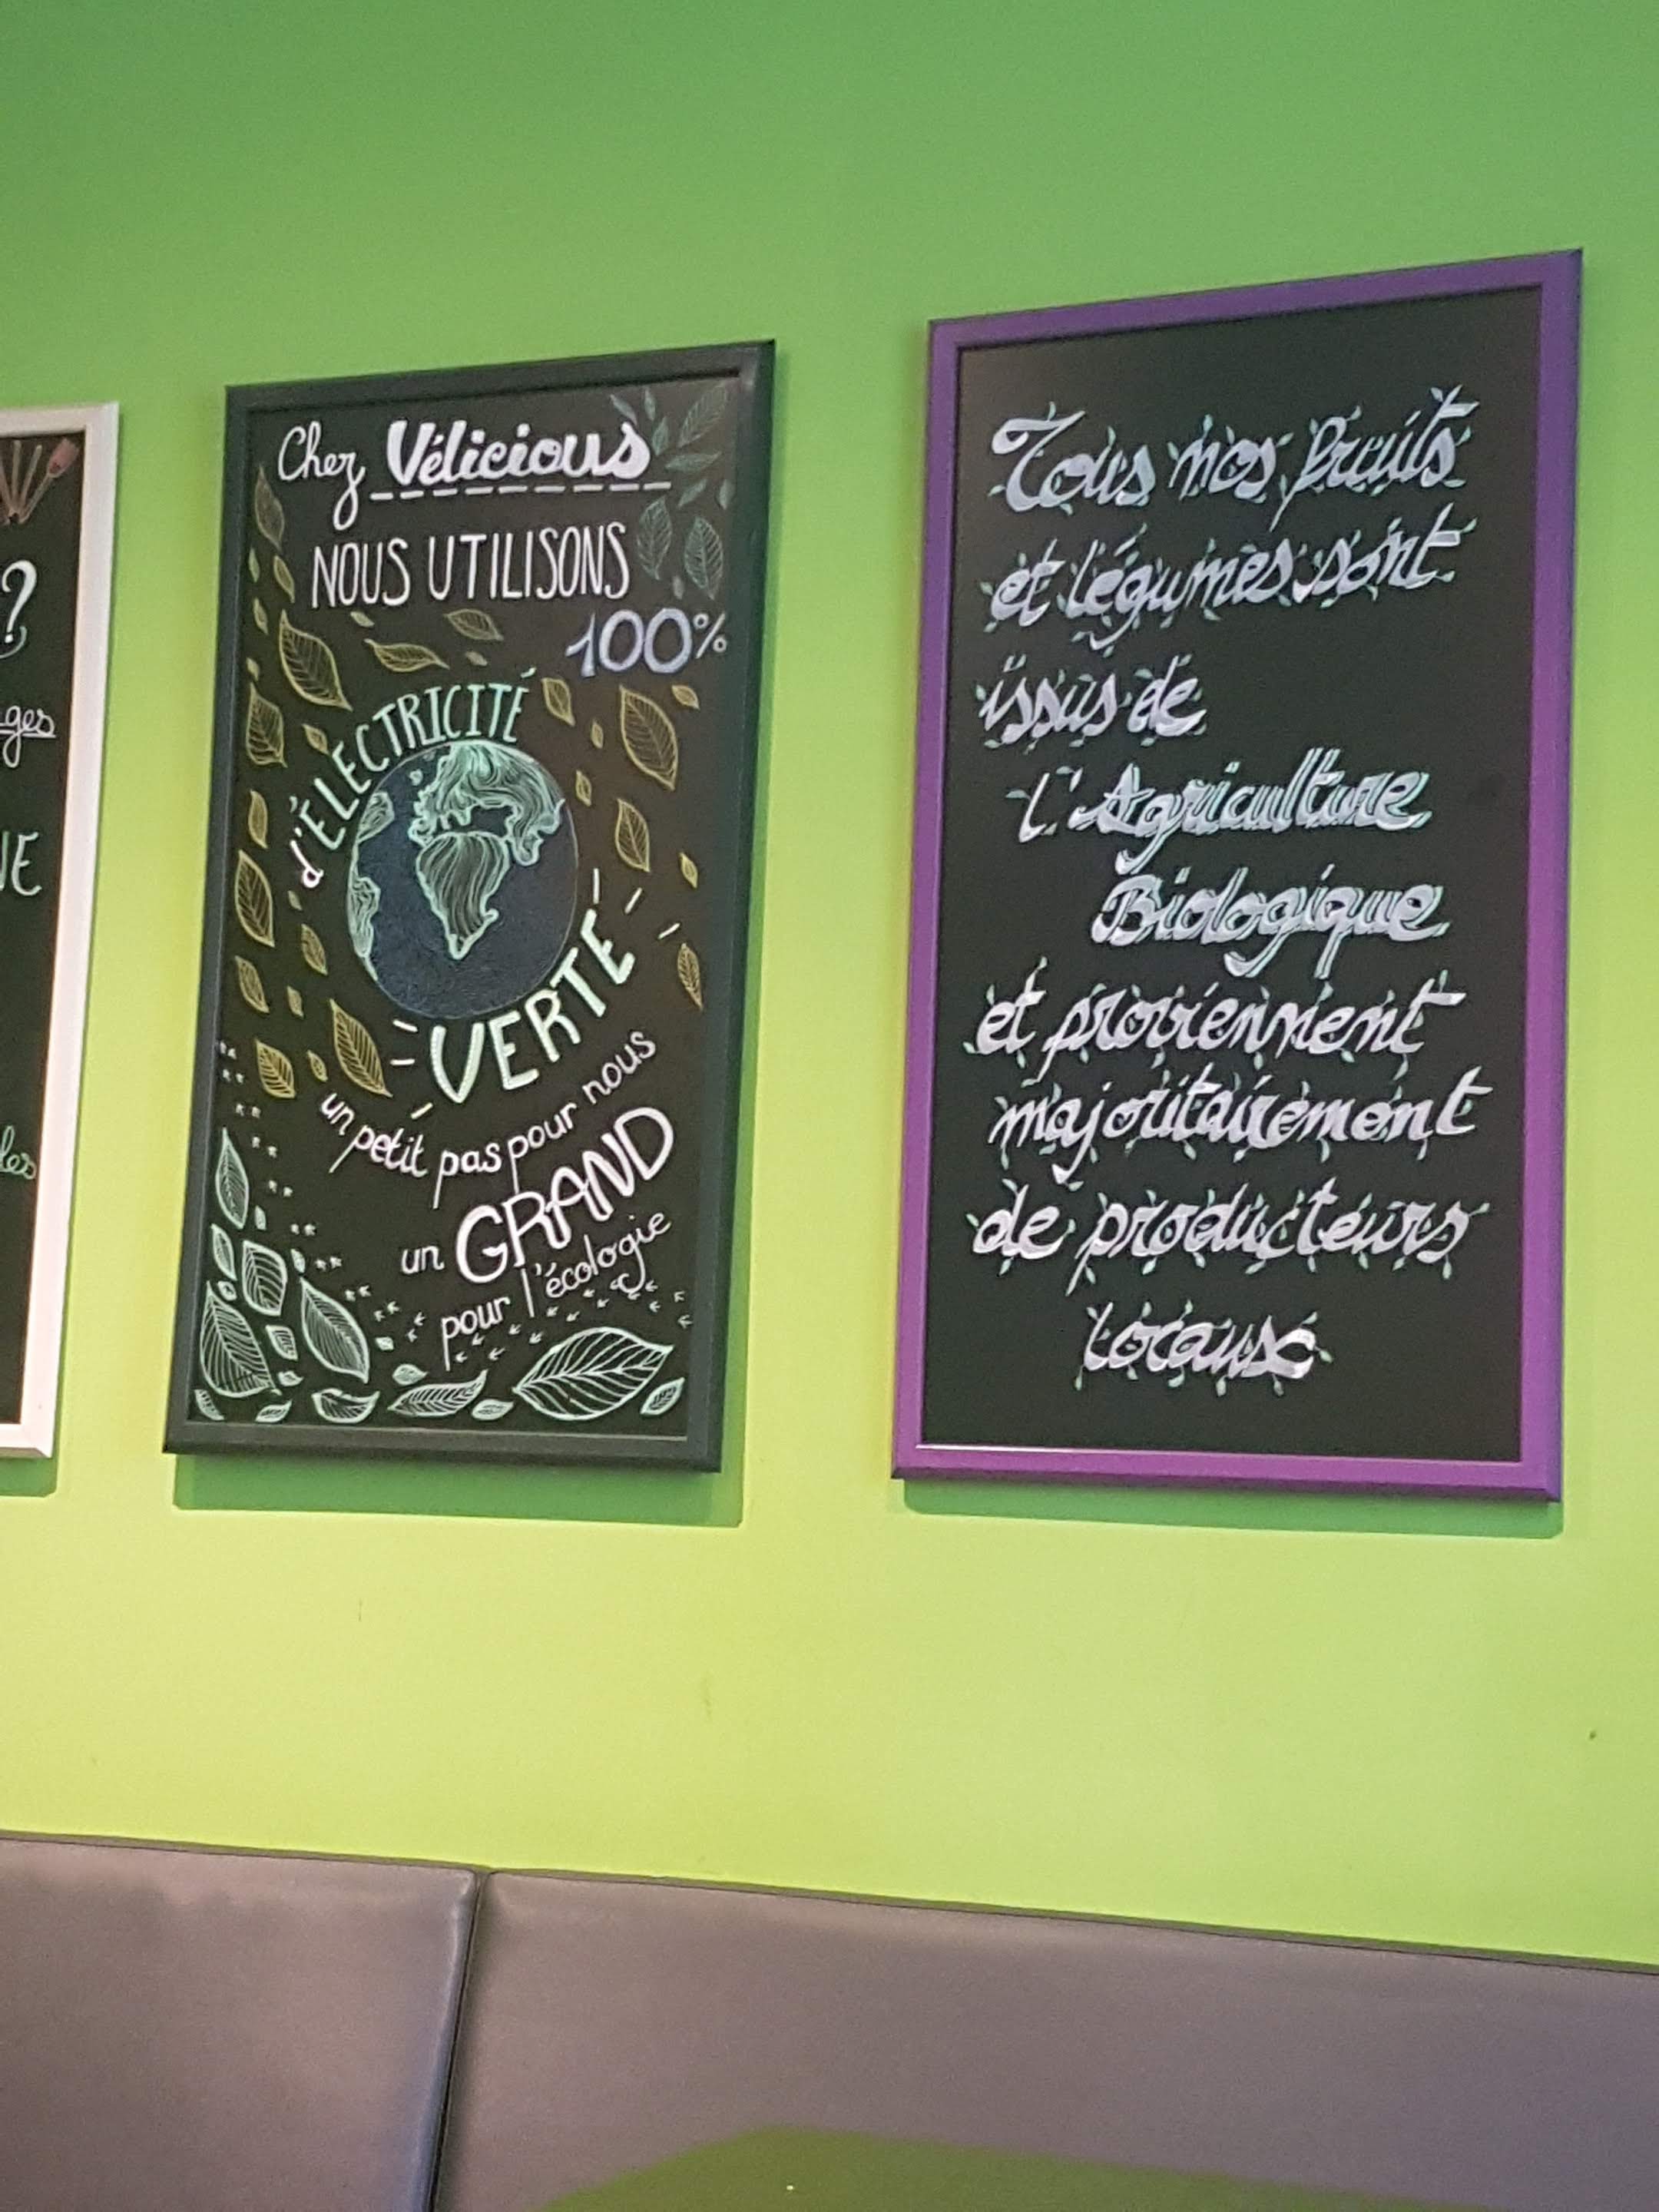 ?
ges
NE
les
Chez Vélicious
NOUS UTILISONS
100%
d'ÉLECTRICITÉ
VERTE
un petit pas pour nous
un GRAND
pour l'écologie
Tous nos fruits
et légumes sont
issus de
l'Agriculture
Biologique
et proviennent
majoritairement
de producteurs
locaux